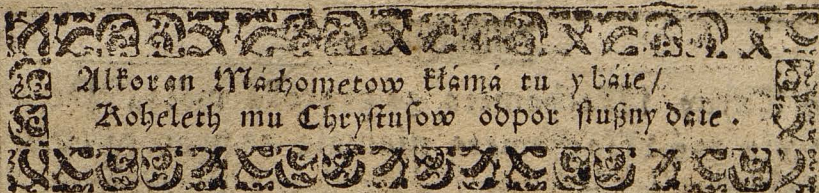 Alkoran Máchometow kłámá tu y báie/
Koheleth mu Chrystusow odpor słußny daie.